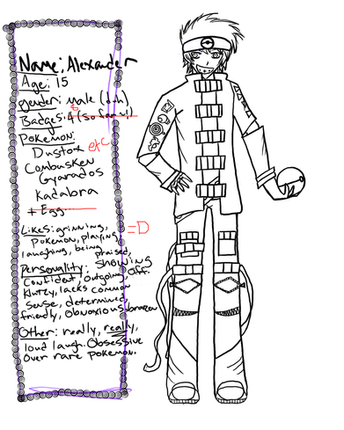 Name: Alexander
Age: 15
Gender: Male (duh)
Badges: 4 (so far)
8
Pokemon:
Dustox etc.
Combusken
Gyarados
Kadabra
+ Egg
Likes: grinning, =D
Pokemon, playing,
laughing, being
praised,
showing
off.
Personality:
Confident, outgoing,
Klutzy, lacks common
sense, determined,
friendly, Obnoxious
Other: really, really,
loud laugh. Obsessive
over rare pokemon.